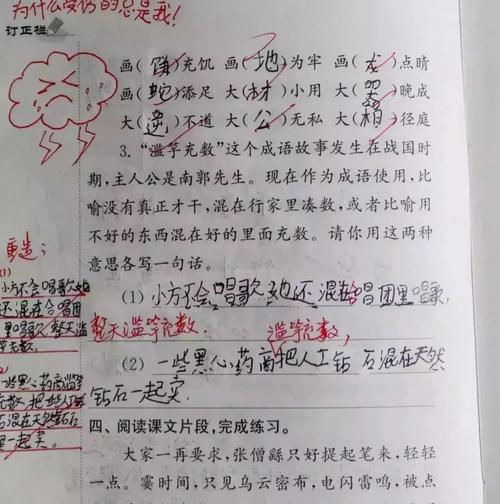 为什么受伤的总是我!
订正栏
画(饼)充饥 画(地)为牢 画(龙)点睛
画(蛇)添足 大(材)小用 大(器)晚成
大(逆)不道 大(公)无私 大(相)径庭
3.“滥竽充数”这个成语故事发生在战国时
期,主人公是南郭先生。现在作为成语使用,比
喻没有真正才干,混在行家里凑数,或者比喻用
不好的东西混在好的里面充数。请你用这两种
意思各写一句话。
(1)小方不会唱歌,她还混在合唱团里唱歌,
整天滥竽充数. 滥竽充数,
(2)一些黑心药商把人工钻石混在天然
钻石一起卖.
四、阅读课文片段,完成练习。
大家一再要求,张僧繇只好提起笔来,轻轻
一点。霎时间,只见乌云密布,电闪雷鸣,被点
重造:
(1)
小方不会唱歌她
还混在合唱团
里唱歌,整天滥
竽充数.
一些黑心药商滥竽
充数,把一些人工钻
石混在天然钻石
里一起卖.